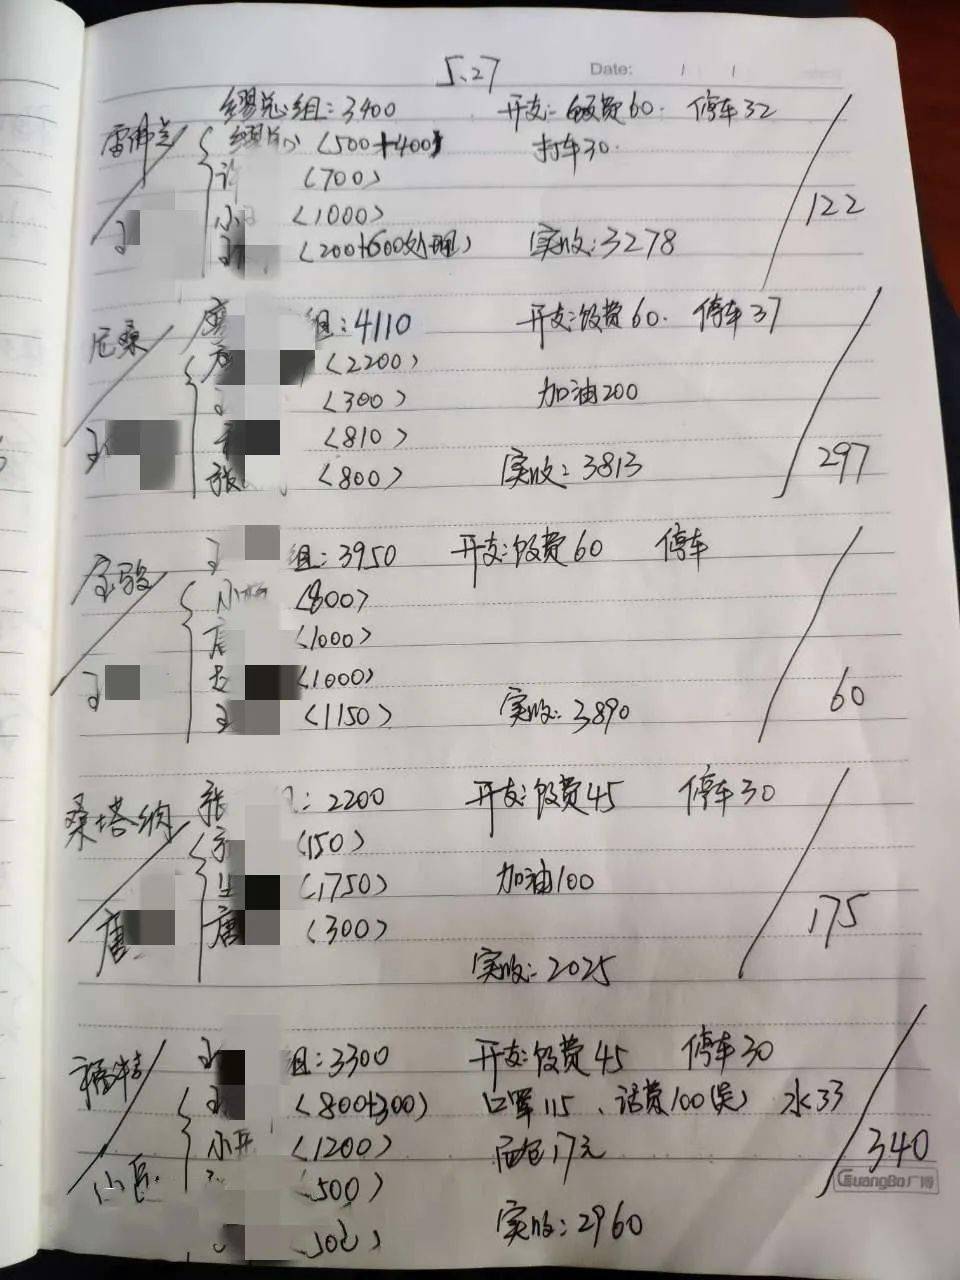 5.27 Date:
缪总组:3400 开支:饭费60. 停车32
雷佛兰 缪 (500+400)
打车30.
许 (700)
小 (1000)
122
王 (200+600处理) 实收:3278
唐 组:4110 开支:饭费60. 停车37
尼桑 (2200)
(300) 加油200
王 (810)
张 (800) 实收:3813
297
王 组:3950 开支:饭费60 停车
宝骏 小杨 (800)
唐 (1000)
王 (1000)
王 (1150) 实收:3890
60
张 组:2200 开支:饭费45 停车30
桑塔纳 (150)
(1750) 加油100
唐 唐 (300)
175
实收:2025
王 组:3300 开支:饭费45 停车30
福特 王 (800+300) 口罩115、话费100(吴) 水33
小 (1200) 面包17元
340
小 (500)
GuangBo广博
实收:2960